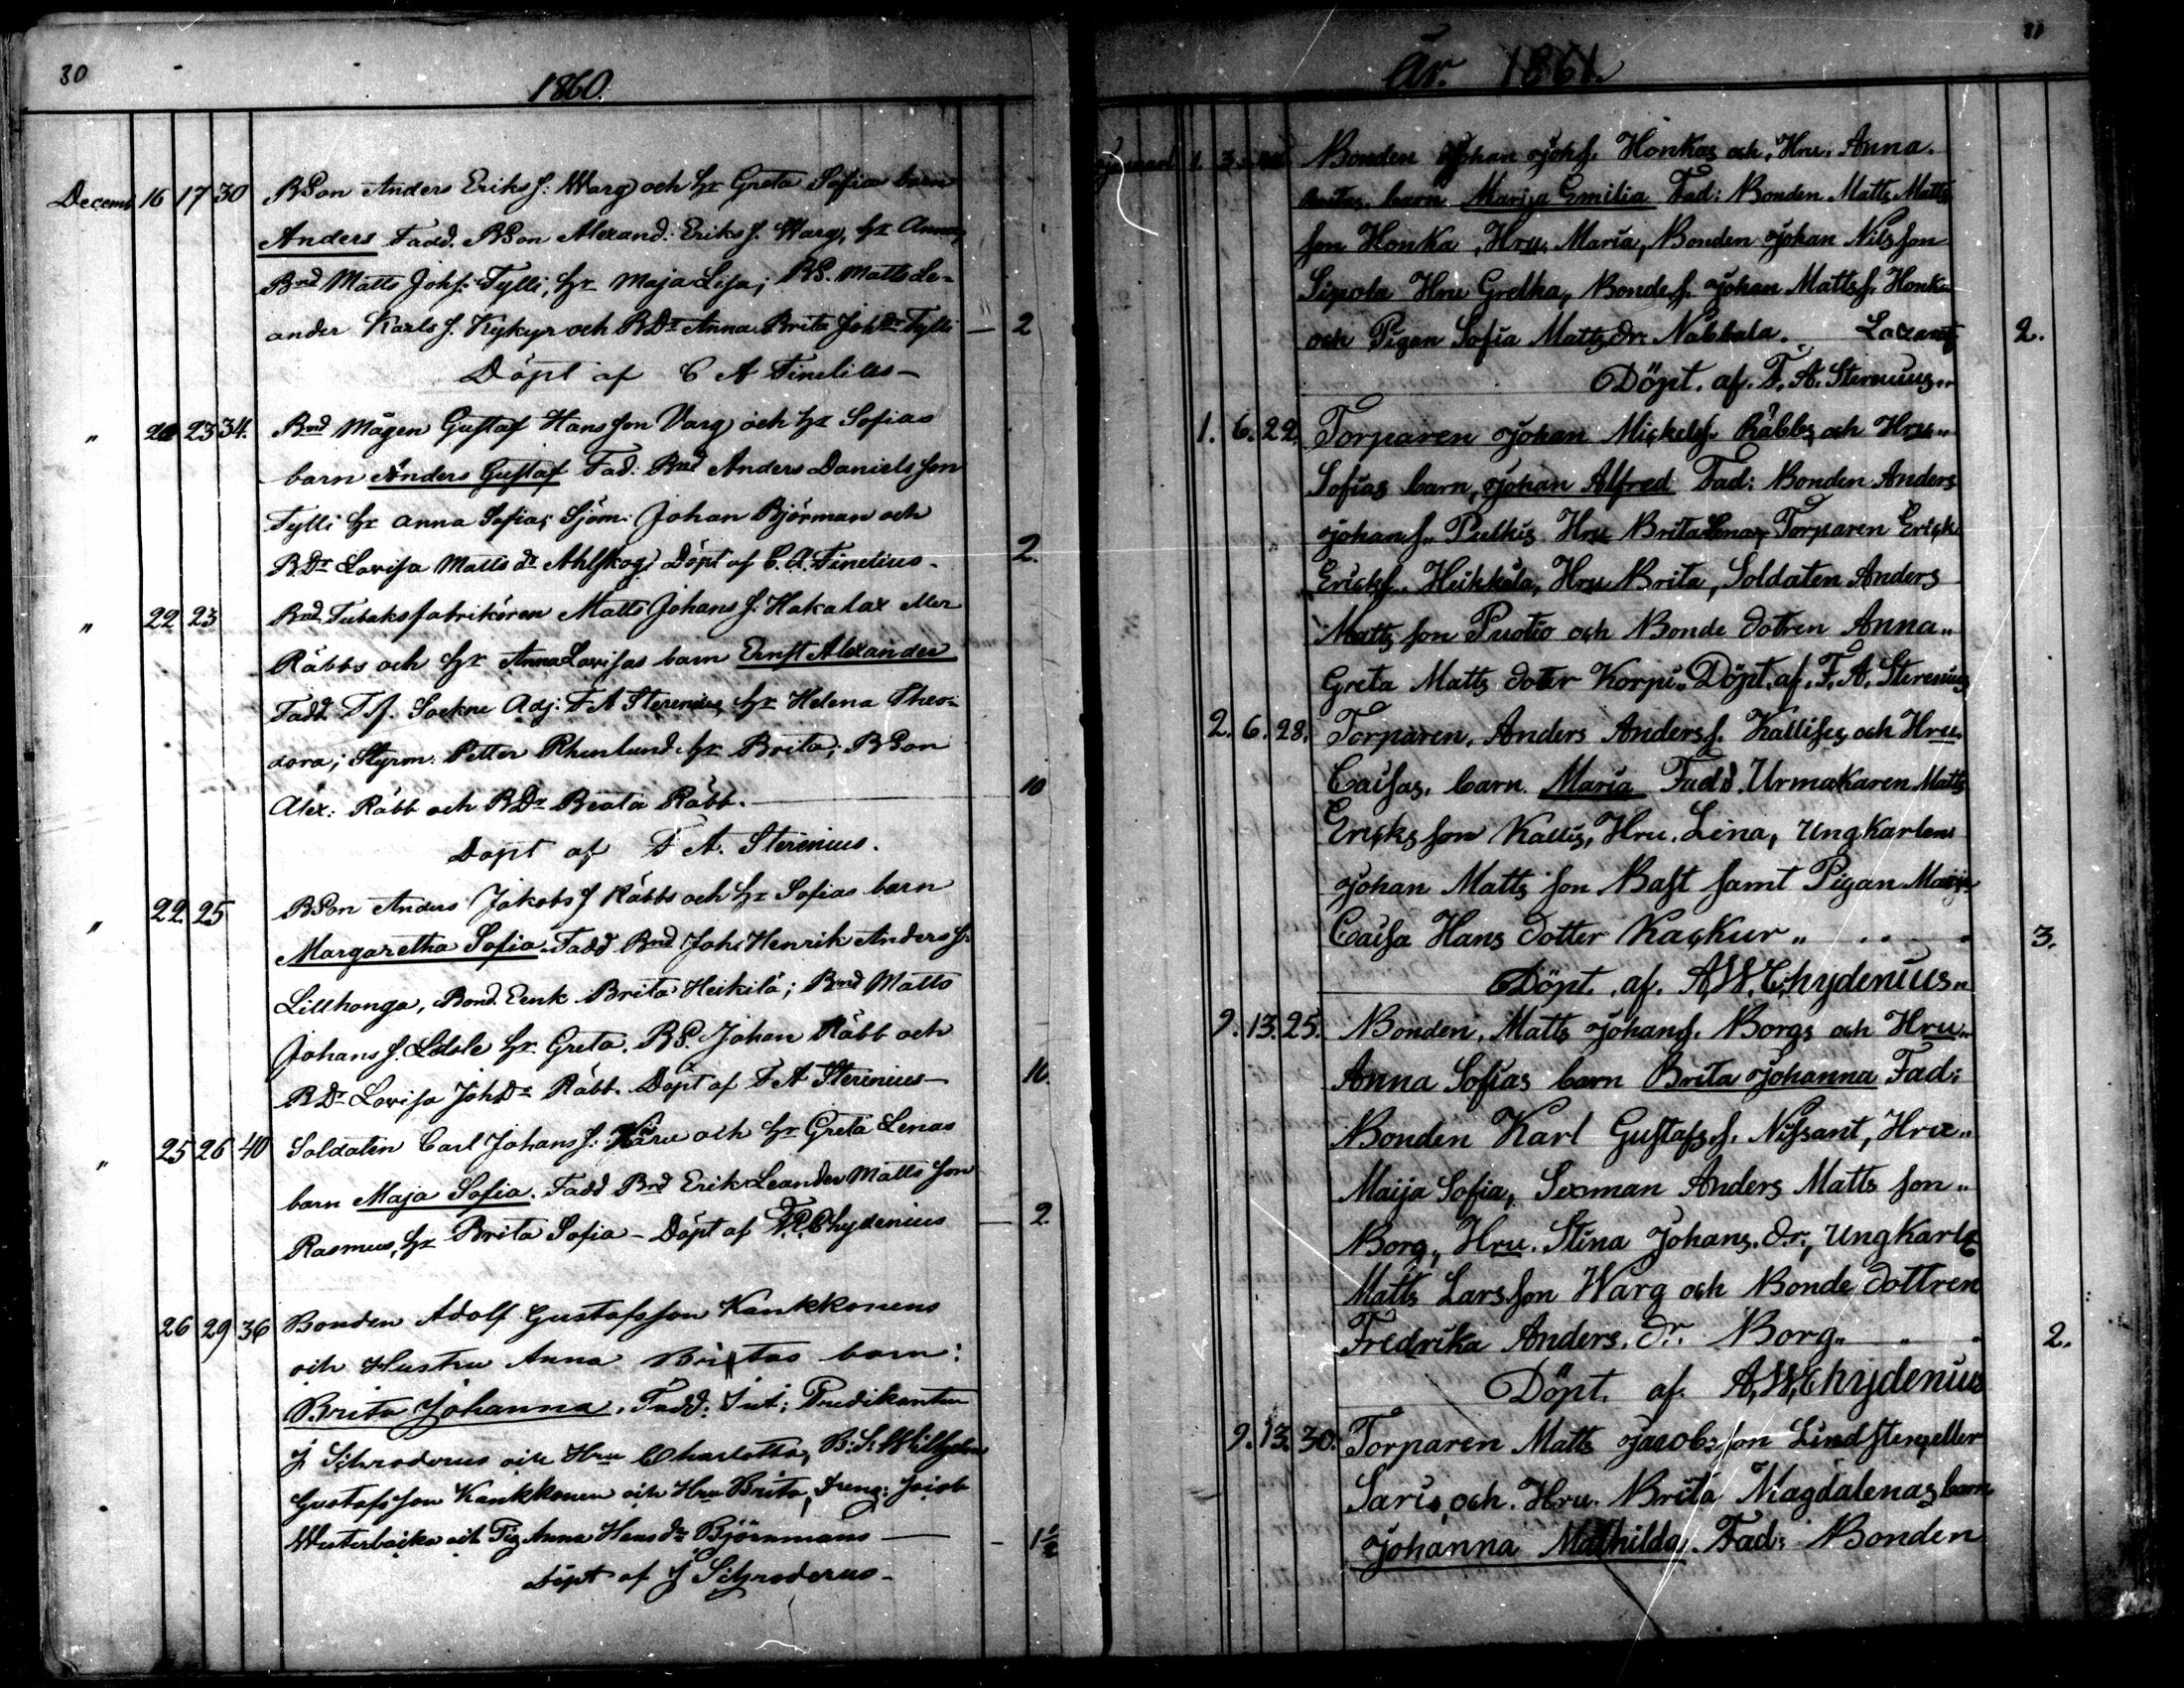 30
1860.
Decemb 16 17 30 BSon Anders Eriks f. Warg och hr Greta Sofias barn
Anders Fadd. BSon Alexand. Eriks f. Warg, hr Anna,
Bnd Matts Johs. f. Tylli, hr Maja Lisa; BS. Matts Le-
ander Karls f. Kykyr och BDr Anna Brita Joh Dr Tylli — 2
Döpt af C A Finelius —
" 20 23 34. Bnd Mågen Gustaf Hansson Varg och hr Sofias
barn Anders Gustaf Fad: Bnd Anders Danielsson
Tylli hr Anna Sofia; Sjöm: Johan Björman och
BDr Lovisa Matts dr Ahlskog Döpt af C. A. Finelius. 2.
" 22 23 Bnd Tubaksfabrikören Matts Johans f. Hakalax eller
Räbbs och hr Anna Lovisas barn Ernst Alexander
Fadd. Tjf. Sockne Adj: F A Sterenius, hr Helena Theo-
dora; Styrm: Petter hr Brita; BSon
Alex: Räbb och BDr Beata Räbb. — 10
Döpt af F A. Sterenius.
" 22 25 BSon Anders Jakobs f Räbbs och hr Sofias barn
Margaretha Sofia. Fadd Bnd Joh: Henrik Anders f.
Lillhonga, Bond. Enk Brita Heikilä; Bnd Matts
Johans f. hr Greta. BS. Johan Räbb och
BDr Lovisa Joh Dr Räbb. Döpt af F A Sterenius — 10.
" 25 26 40 Soldaten Carl Johans f. och hr Greta Lenas
barn Maja Sofia. Fadd Bnd Erik Leander Matts son
Rasmus, hr Brita Sofia — Döpt af Chydenius — 2
26 29 36 Bonden Adolf Gustafsson Kankkonens
och Hustru Anna Britas barn:
Brita Johanna. Fadd: Predikanten
J Schroderus och Hru Charlotta, B: S: Wilhelm
Gustafsson Kankkonen och Hru Brita, Dreng: Jacob
Westerbacka och Pig Anna Hans dr Björnmans — 1½
Döpt af J Schroderus —
år. 1861.
31
Januari 1. 3. Bonden Johan Johs. f. Honkas och, Hru. Anna.
Britas, barn Marija Emilia Fad: Bonden Matts Matts
son Honka, Hru. Maria, Bonden Johan Nilsson
Sipola Hru Gretha, Bonde f. Johan Matts f. Honka
och Pigan Sofia Matts dr. Nabbala. 2.
Döpt. af. F. A. Sterenius..
1. 6. 22. Torparen Johan Mickels f. Räbbs och Hru..
Sofias barn, Johan Alfred Fad: Bonden Anders
Johans f.. Pulkis Hru Brita Lena, Torparen Erick
Ericks f.. Heikkilä, Hru Brita, Soldaten Anders
Matts son Puotio och Bonde dotren Anna..
Greta Matts doter Korpi.. Döpt. af. F. A. Sterenius
2. 6. 28. Torparen, Anders Anders f. Kallises och Hru.
Caisas. barn. Maria Fadd. Urmakaren Matts
Ericks son Kallis, Hru. Lina, Ungkarlen
Johan Matts son Bast samt Pigan Maija
Caisa Hans dotter Kackur.. 3.
Döpt. af. A.W. Chydenius..
9. 13. 25. Bonden, Matts Johans f. Borgs och Hru..
Anna Sofias barn Brita Johanna Fad:
Bonden Karl Gustafs f. Nissant, Hru..
Maija Sofia, Sexman Anders Matts son..
Borg, Hru. Stina Johans. dr., Ungkarls
Matts Larsson Warg och Bonde dottren
Fredrika Anders. dr. Borg.. 2.
Döpt. af. A.W. Chydenius
9. 13. 30. Torparen Matts Jacobsson Lindsten, eller
Saris, och. Hru. Brita Magdalenas barn
Johanna Mathilda. Fad: Bonden